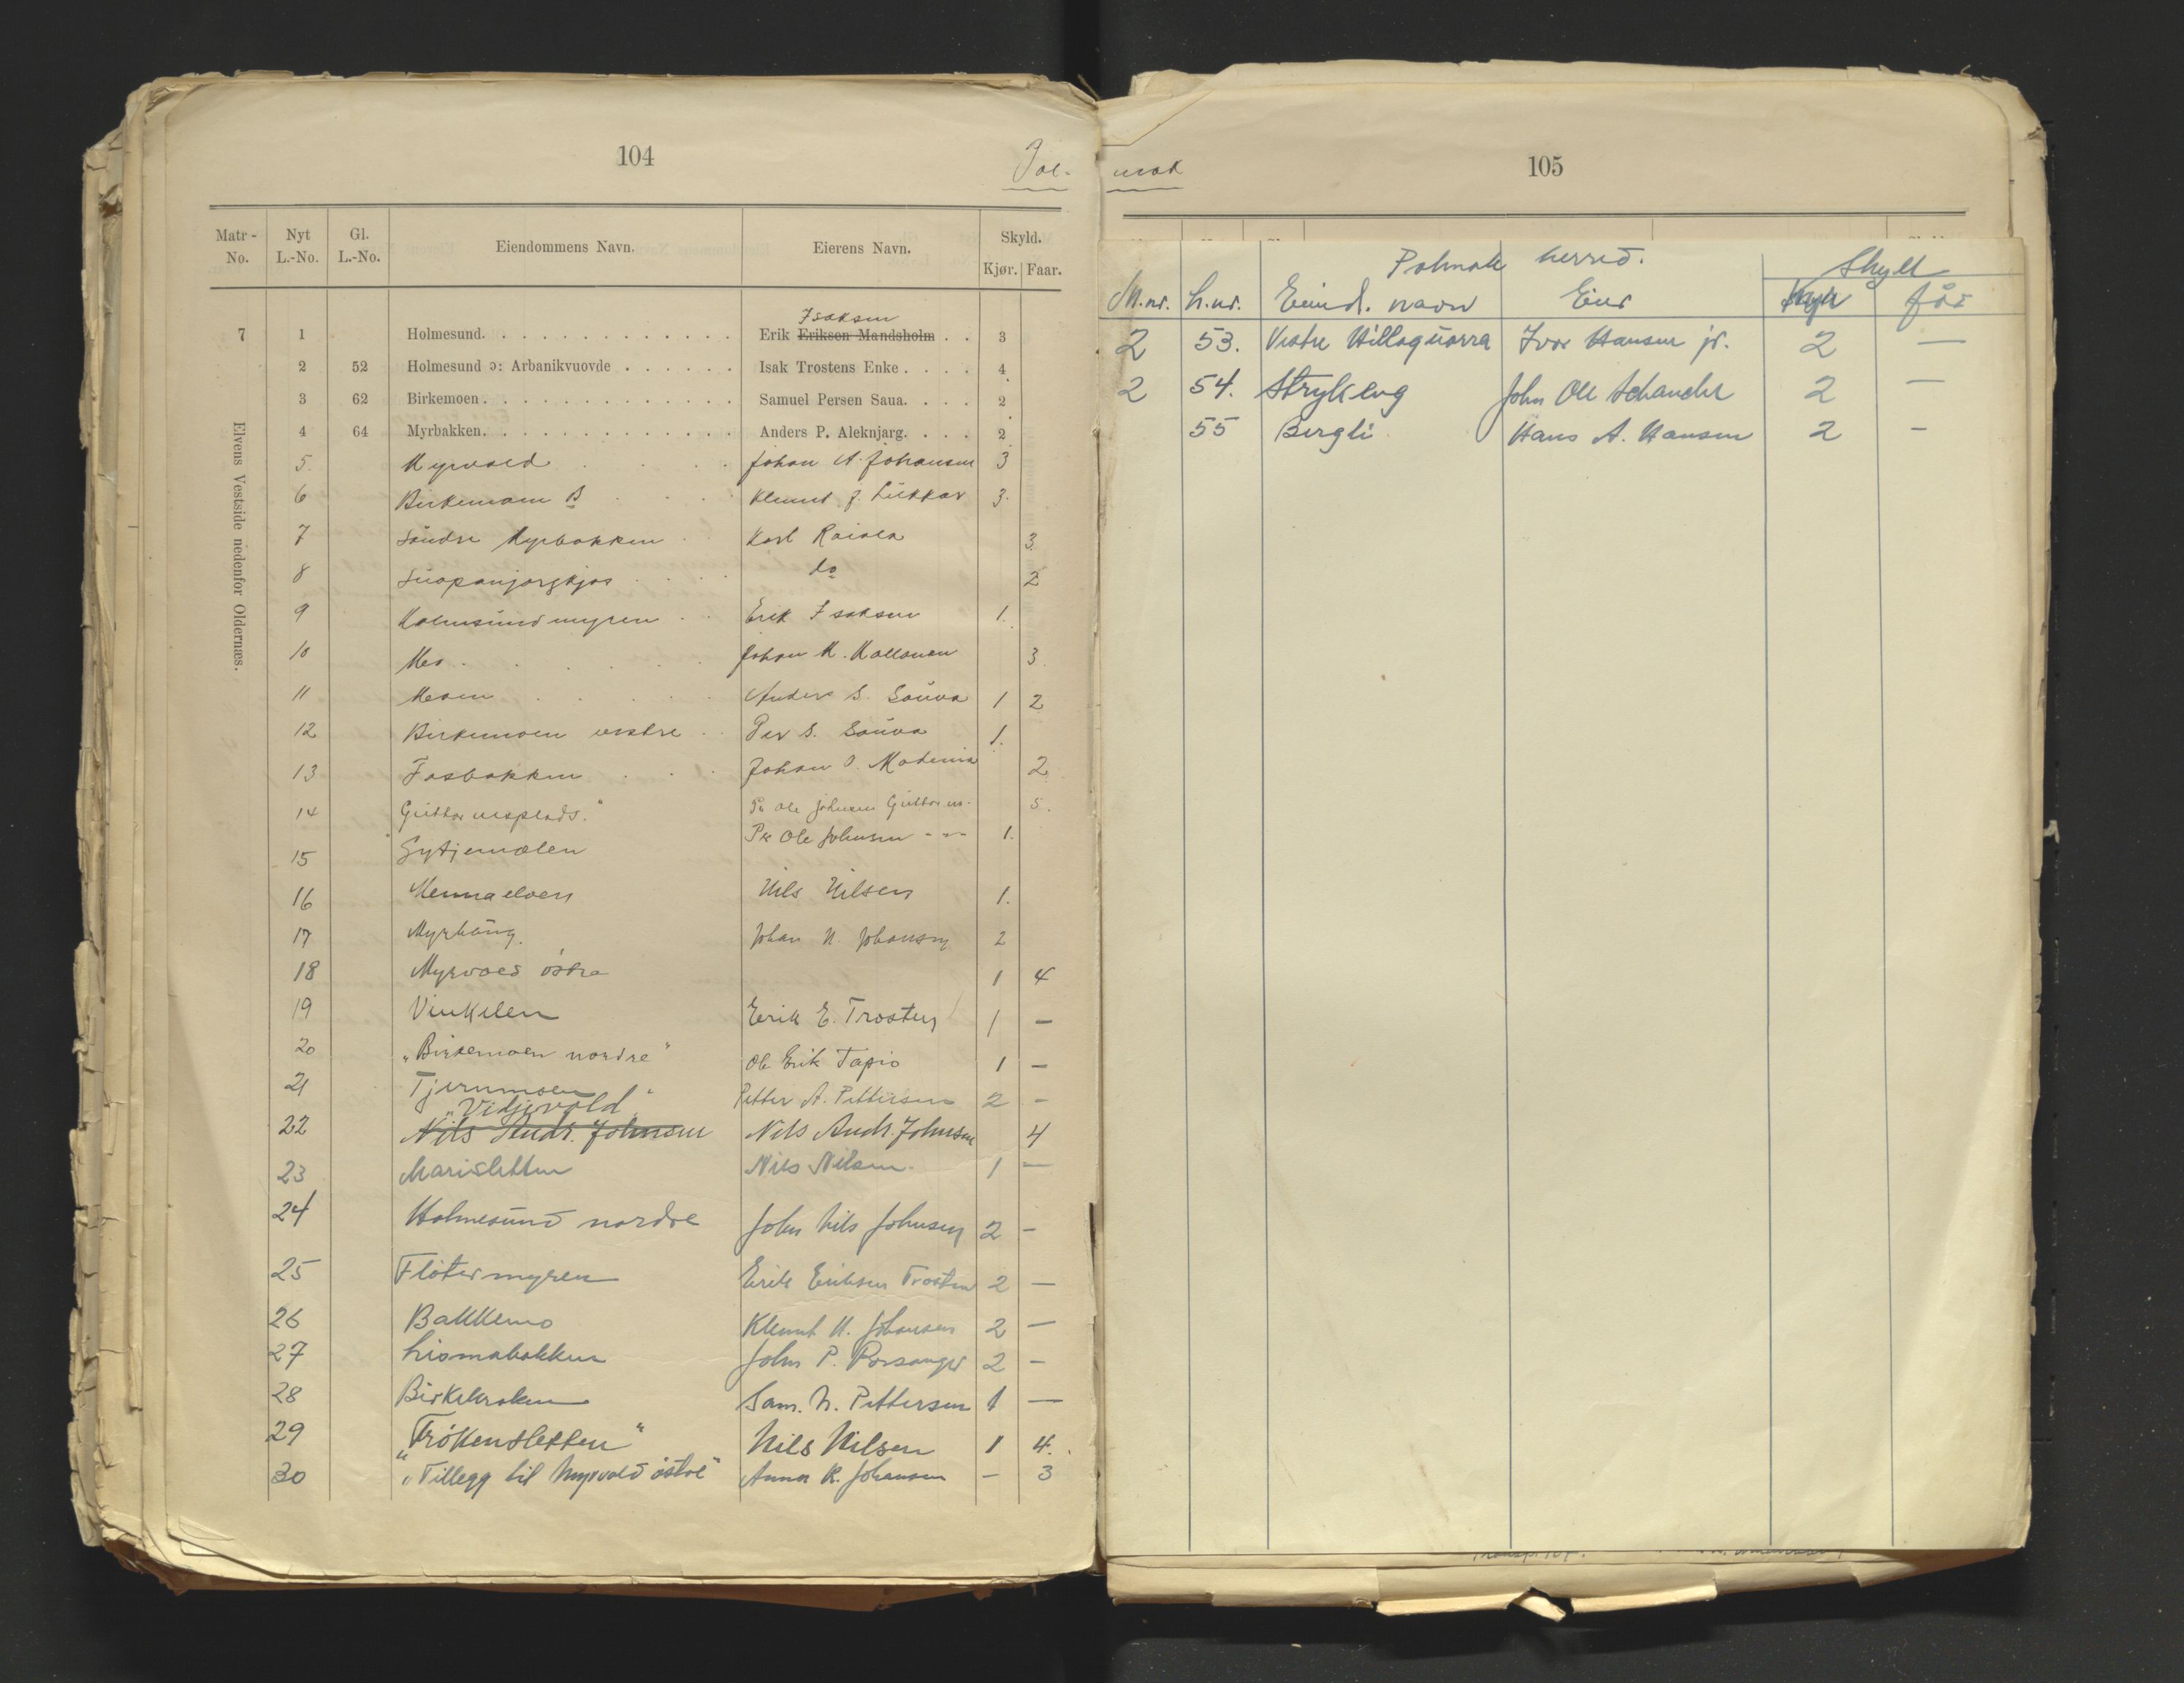 104
Matr-No. Nyt L.-No. Gl. L.-No. Eiendommens Navn. Eierens Navn. Skyld.
Kjør. Faar.
Elvens Vestside nedenfor Oldernæs.
Isaksen
7 1 Holmesund. Erik Eriksen Mandsholm 3
2 52 Holmesund ɔ: Arbanikvuovde Isak Trostens Enke 4
3 62 Birkemoen Samuel Persen Saua 2
4 64 Myrbakken Anders P. Aleknjarg 2
5 Myrvold Johan A. Johansen 3
6 Birkemoen B Klemet J. Lukkar 3
7 Søndre Myrbakken Karl Raiola 3
8 do 2
9 Holmsundmyren Erik Isaksen 1
10 Mo Johan K. 3
11 Moen Anders S. Sauva 1 2
12 Birkemoen vestre Per S. Sauva 1
13 Fosbakken Johan O. 2
14 Guttormsplads. Pr Ole Johnsen Guttorm. 5.
15 Gytjemælen Pr Ole Johnsen -"- 1.
16 Nils Nilsen 1.
17 Myrhaug Johan N. Johansen 2
18 Myrvold østre 1 4
19 Vinkelen Eerik E. Trosten 1 —
20 "Birkemoen nordre" Ole Erik Tapio 1 —
21 Tjernmoen Petter A. Pettersen 2 -
"Vidjevold"
22 Nils Andr. Johnsen Nils Andr. Johnsen 4
23 Marisletten Nils Nilsen 1 —
24 Holmesund nordre John Nils Johnsen 2 -
25 Fløtermyren Erik Eriksen Trosten 2 —
26 Bakkemo Klemet N. Johansen 2 —
27 Liomabakken John P. Porsanger 2 -
28 Birkekroken Sam. N. Pettersen 1 —
29 "Frøkensletten" Nils Nilsen 1 4.
30 "Tillegg til Myrvold østre" Anna K. Johansen - 3
105
Polmak herred.
M.nr. L.nr. Eiend. navn Eier Skyld
Kyr får
2 53. Vestre Hillagurra Ivar Hansen jr. 2 —
2 54. Strykeng John Ole Schanche 2 —
55 Bergli Hans A. Hansen 2 -